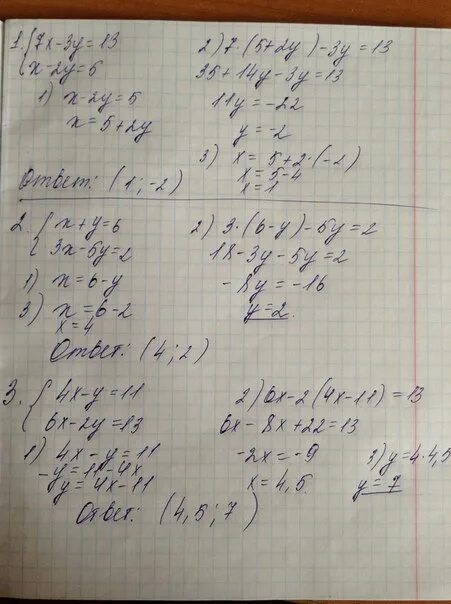 1. { 7x-3y=13
{ x-2y=5
1) x-2y=5
x=5+2y
2) 7·(5+2y)-3y=13
35+14y-3y=13
11y=-22
y=-2
3) x=5+2·(-2)
x=5-4
x=1
Ответ: (1; -2)
2. { x+y=6
{ 3x-5y=2
1) x=6-y
2) 3·(6-y)-5y=2
18-3y-5y=2
-8y=-16
y=2.
3) x=6-2
x=4
Ответ: (4; 2)
3. { 4x-y=11
{ 6x-2y=13
1) 4x-y=11
-y=11-4x
y=4x-11
2) 6x-2(4x-11)=13
6x-8x+22=13
-2x=-9
x=4,5.
3) y=4·4,5
y=7
Ответ: (4,5; 7)